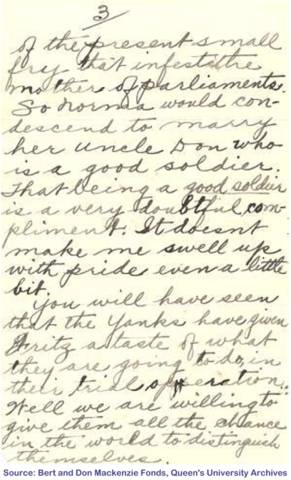 3
of the present small
fry that infest the
mother of parliaments.
So Norma would con-
descend to marry
her uncle Don who
is a good soldier.
That being a good soldier
is a very doubtful com-
pliment. It doesnt
make me swell up
with pride even a little
bit.
You will have seen
that the Yanks have given
Fritz a taste of what
they are going to do, in
their trial operation.
Well we are willing to
give them all the chance
in the world to distinguish
themselves.
Source: Bert and Don Mackenzie Fonds, Queen's University Archives